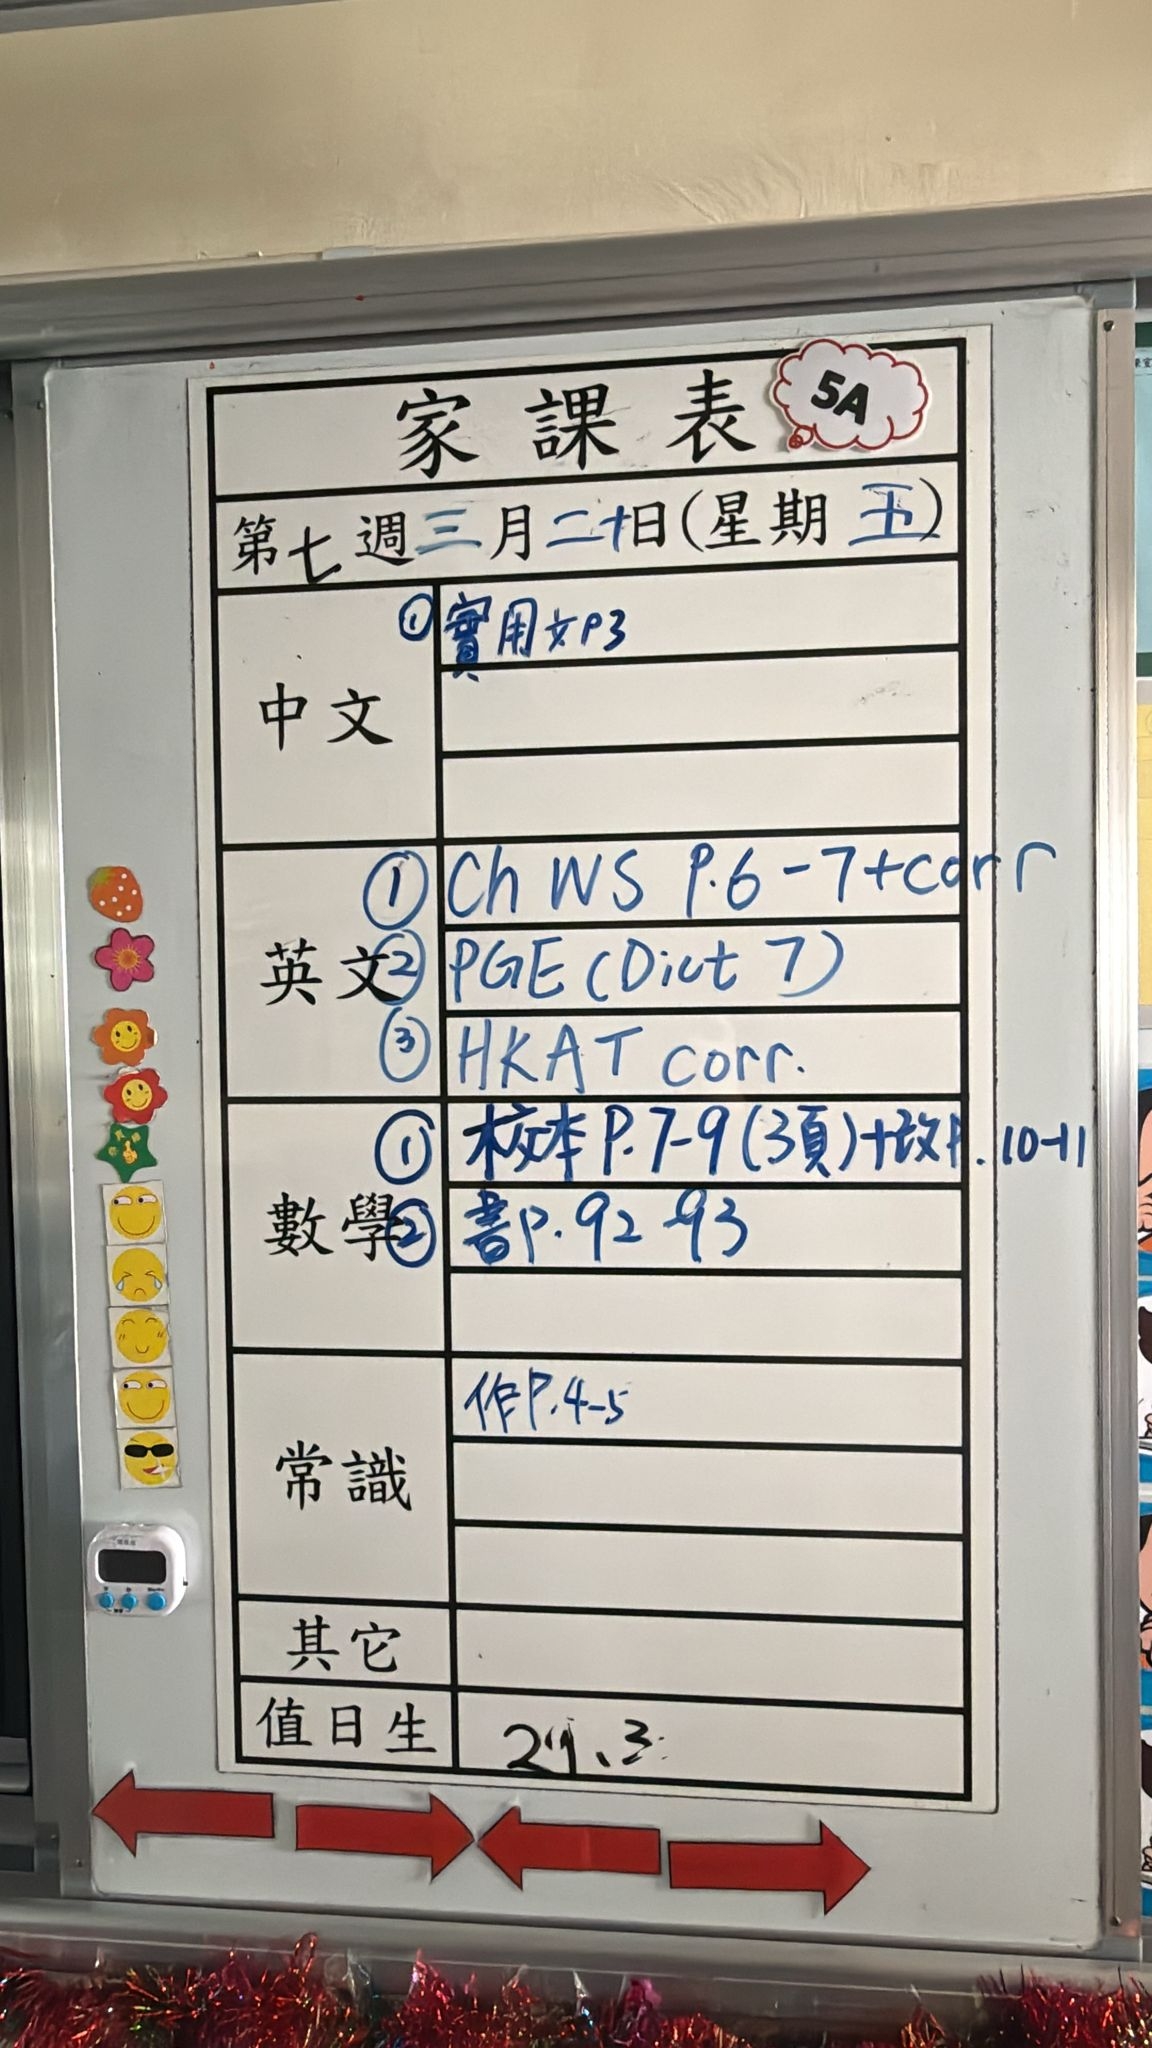 家課表 5A
第七週三月二十日(星期五)
中文
① 實用文P3
英文
① Ch WS P.6-7+corr
② PGE (Dict 7)
③ HKAT corr.
數學
① 校本P.7-9(3頁)+改P.10-11
② 書P.92-93
常識
作P.4-5
其它
值日生